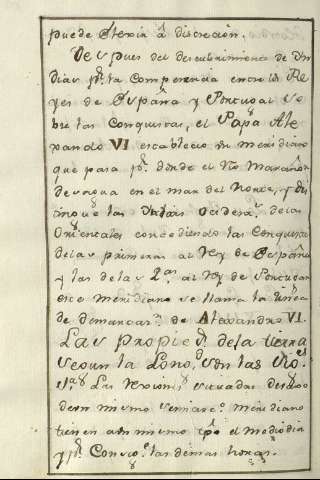 puede elexir á discrecion.
Despues del descubrimiento de In
dias pr. la competencia entre los Re
yes de España y Portugal so
bre las Conquistas, el Papa Ale
xandro VI establecio un meridiano
que pasa pr. donde el Rio Marañon
desagua en el mar del Norte, y dis
tingue las Indias Occidens. de las
Orientales concediendo las Conquistas
de las primeras al Rey de España
y las de las 2as. al Rey de Portugal
este meridiano se llama la linea
de demarcasn. de Alexandro VI.
Las propieds. de la tierra
segun la Longd. son las sigtes.
1ra. Las Rexiones situadas debaxo
de un mismo semicirco. meridiano
tienen a un mismo tpo. el mediodia
y pr. Consigte. las demas horas.